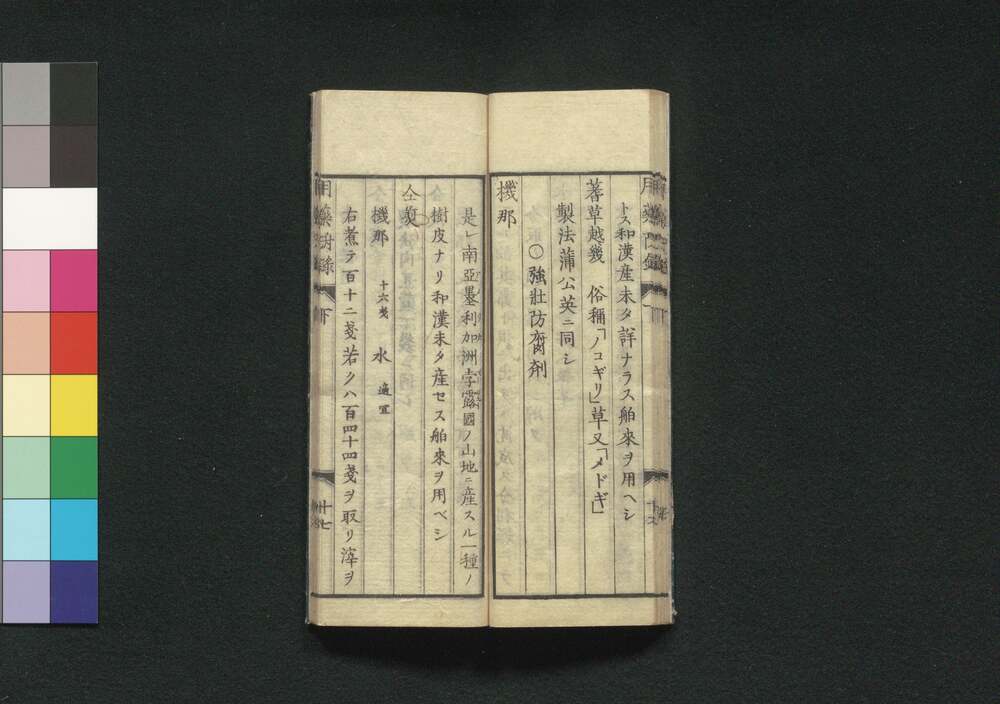 トス和漢産未タ詳ナラス舶來ヲ用ヘシ
蓍草越幾　俗稱「ノコギリ」草又「メドギ」
製法蒲公英ニ同シ
○強壯防腐剤
機那
是レ南亞墨利加洲孛露國ノ山地ニ産スル一種ノ
樹皮ナリ和漢未タ産セス舶來ヲ用ベシ
仝煑
機那　十六戔　水　適宜
右煮テ百十二戔若クハ一百四十四戔ヲ取リ滓ヲ
下
十七